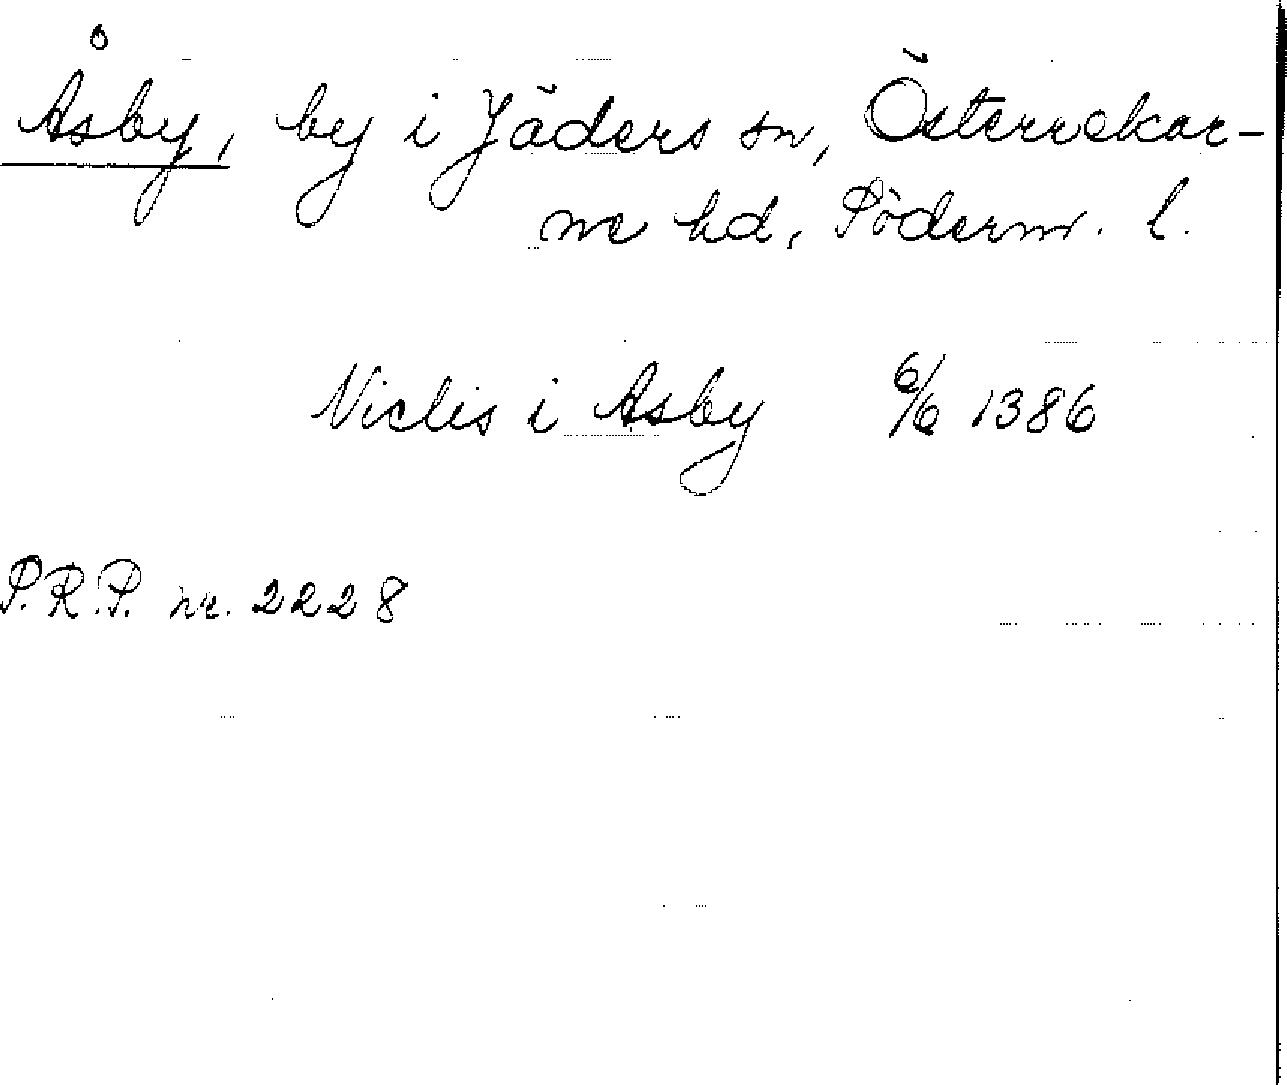 Åsby, by i Jäders sn, Österrekar-
ne hd, Söderm. l.
Niclis i Asby 6/6 1386
P.R.P. nr. 2228